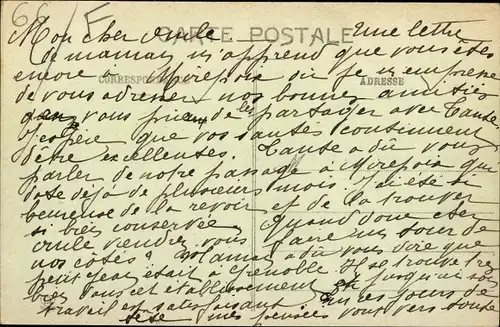 66/E
CARTE POSTALE
CORRESPONDANCE
ADRESSE
Mon cher oncle Une lettre
de maman m'apprend que vous êtes
encore à Mirepoix où je m'empresse
de vous adresser nos bonnes amitiés
vous priant de les partager avec Tante
J'espère que vos santés continuent
d'être excellentes. Tante a dû vous
parler de notre passage à Mirepoix qui
date déjà de plusieurs mois. J'ai été si
heureuse de la revoir et de la trouver
si bien conservée. Quand donc cher
oncle viendrez vous faire un tour de
nos côtés? Maman a dû vous dire que
petit Jean était à Grenoble. Il se trouve très
bien dans cet établissement et jusqu'ici son
travail est satisfaisant. En ces jours de
fête mes pensées vont vers toute